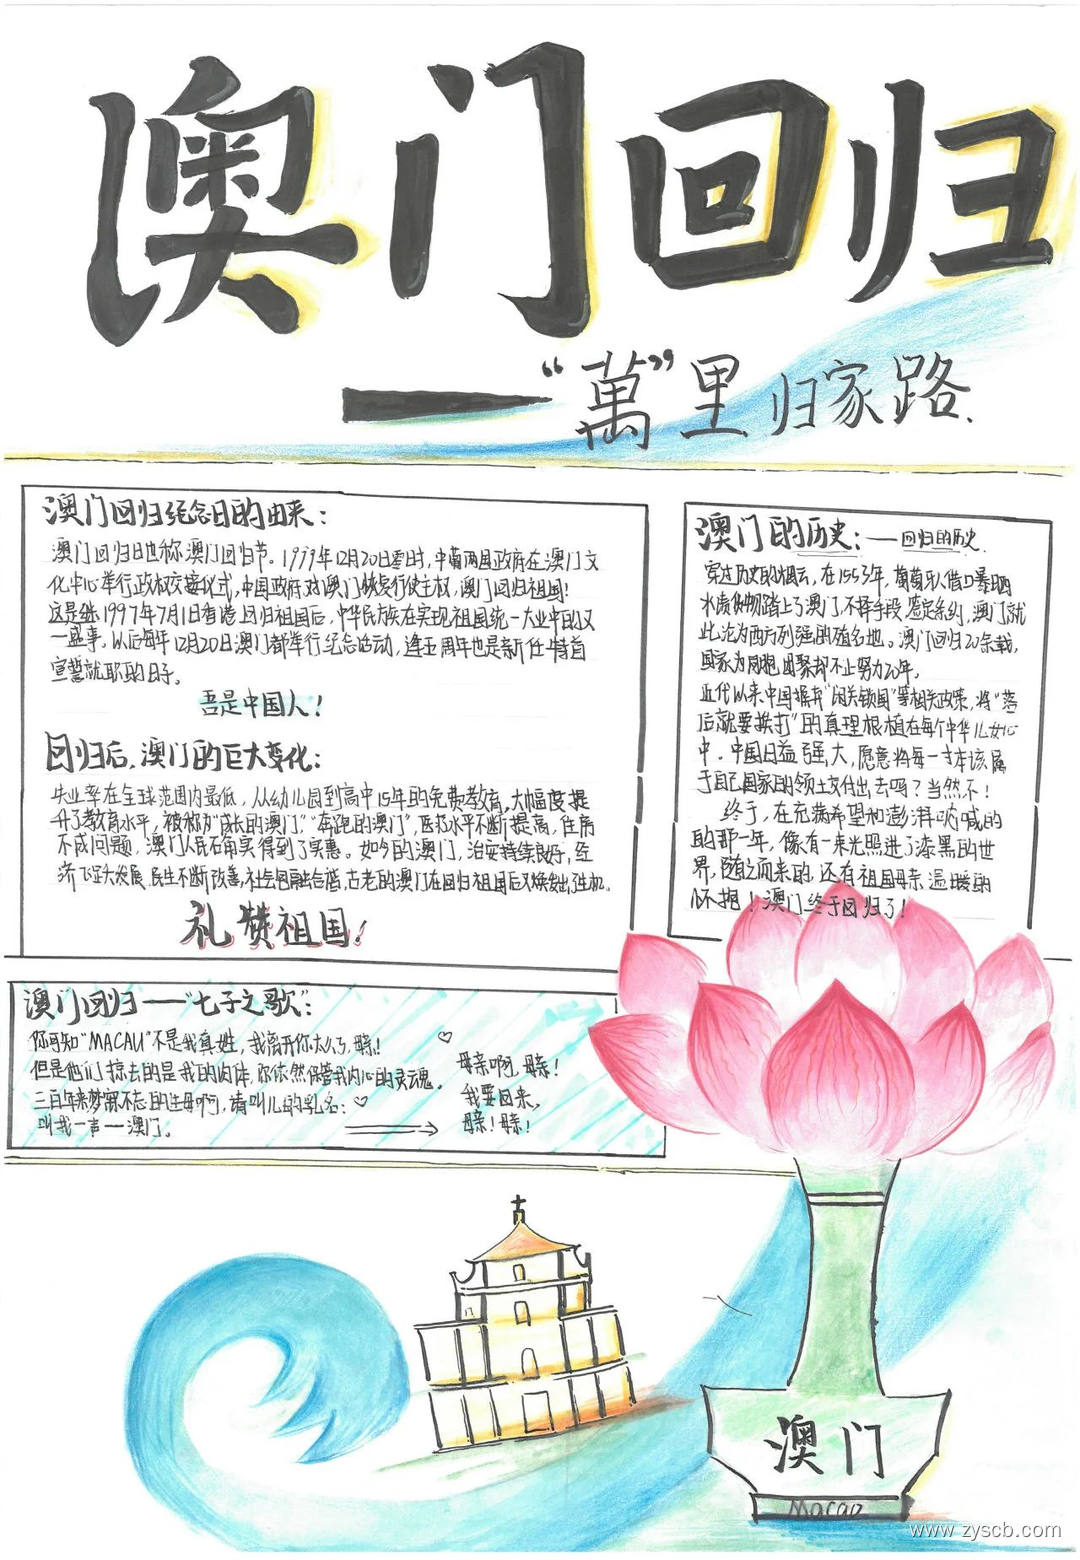 澳门回归
——“萬”里归家路.
澳门回归纪念日的由来:
澳门回归日也称澳门回归节。1999年12月20日零时,中葡两国政府在澳门文
化中心举行政权交接仪式,中国政府对澳门恢复行使主权,澳门回归祖国!
这是继1997年7月1日香港回归祖国后,中华民族在实现祖国统一大业中的又
一盛事。从后每年12月20日澳门都举行纪念活动,逢五周年也是新任特首
宣誓就职的日子。
吾是中国人!
回归后,澳门的巨大变化:
失业率在全球范围内最低,从幼儿园到高中15年的免费教育,大幅度提
升了教育水平,被称为“成长的澳门”“奔跑的澳门”,医疗水平不断提高,住房
不成问题,澳门人民石角实得到了实惠。如今的澳门,治安持续良好,经
济飞速大发展、民生不断改善,社会包融合谐,古老的澳门在回归祖国后又焕发出生机。
礼赞祖国!
澳门的历史:——回归的历史.
穿过历史的烟云,在1553年,葡萄牙人借口曝晒
水渍货物踏上了澳门,不择手段签定条约,澳门就
此沦为西方列强的殖民地。澳门回归20余载,
国家为拥抱团聚却不止努力20年。
近代以来中国摒弃“闭关锁国”等相关政策,将“落
后就要挨打”的真理根植在每个中华儿女心
中。中国日益强大,愿意将每一寸本该属
于自己国家的领土交付出去吗?当然不!
终于,在充满希望和澎湃呐喊的
的那一年,像有一束光照进了漆黑的世
界,随之而来的,还有祖国母亲温暖的
怀抱!澳门终于回归了!
澳门回归——“七子之歌”:
你可知“MACAU”不是我真姓,我离开你太久了,母亲!
但是他们掠去的是我的肉体,你依然保管我内心的灵魂。
三百年来梦寐不忘的生母啊,请叫儿的乳名:
叫我一声——澳门。
母亲啊,母亲!
我要回来,
母亲!母亲!
澳门
Macao
www.zyscb.com